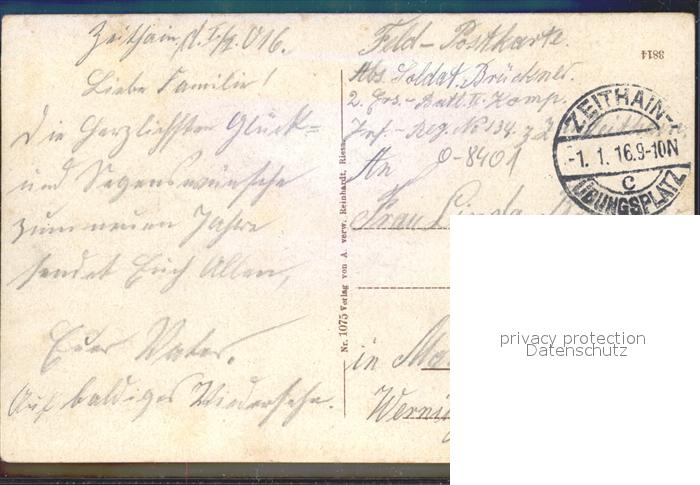 Zeithain, d. 1/1. 016.
Liebe Familie!
Die herzlichsten Glück=
und Segenswünsche
zum neuen Jahre
sendet Euch Allen,
Euer Vater.
Auf baldiges Wiedersehn.
Nr. 1075 Verlag von A. verw. Reinhardt, Riesa
3814
Feld-Postkarte.
Abs. Soldat. Brückner.
2. Ers.-Batl. II. Komp.
Inf.-Reg. No 134. z. Z.
An 0-8401
Frau Linda
in
ZEITHAIN
-1. 1. 16.9-10N
c
ÜBUNGSPLATZ
privacy protection
Datenschutz